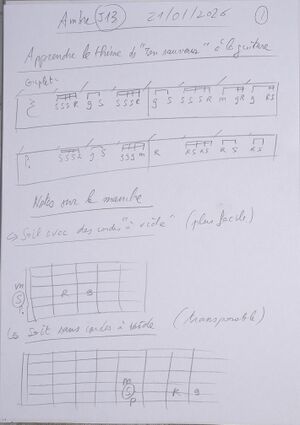 Ambre J13 21/01/2026 1
Apprendre le thème de "Zen sauveur" à la guitare
Couplet
S S S R g S S S S R g S S S S R m g R g R S
S S S R g S S S g m R R S R S R S R S
Notes sur le manche
↳ Soit avec des cordes "à vide" (plus facile)
m
S R g
↳ Soit sans cordes à vide (transposable)
m
S R g
p